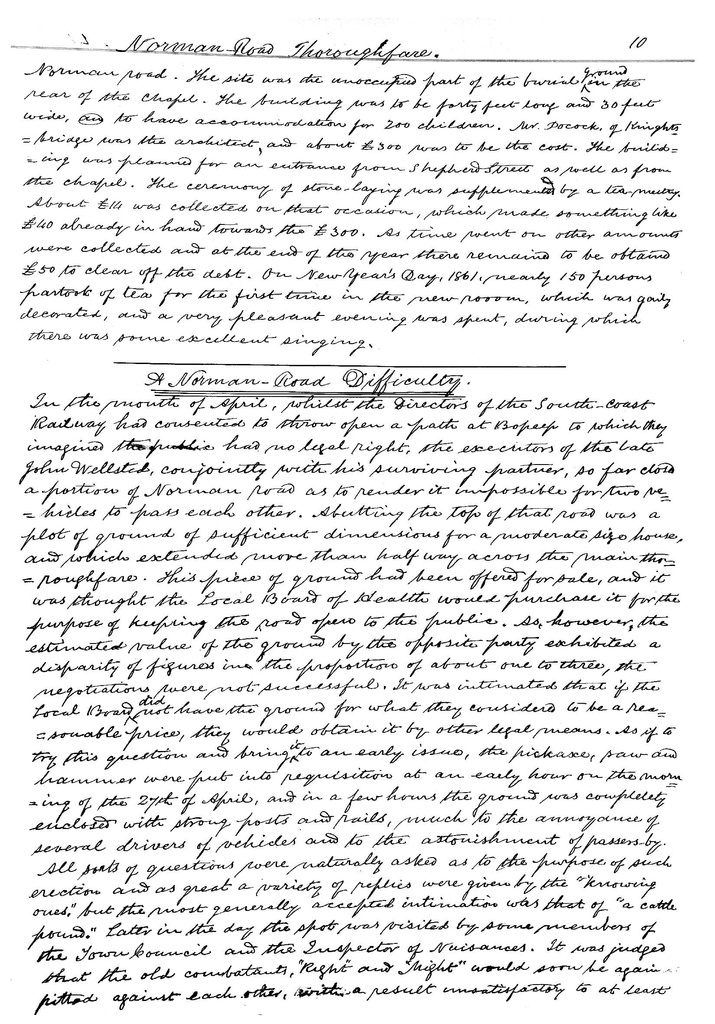 Norman-Road Thoroughfare. 10
Norman road. The site was the unoccupied part of the burial ground in the
rear of the chapel. The building was to be forty feet long and 30 feet
wide, and to have accommodation for 200 children. Mr. Pocock, of Knights-
=bridge was the architect, and about £300 was to be the cost. The build-
=ing was planned for an entrance from Shepherd Street as well as from
the chapel. The ceremony of stone-laying was supplemented by a tea-meeting.
About £14 was collected on that occation, which made something like
£40 already in hand towards the £300. As time went on other amounts
were collected and at the end of the year there remained to be obtand
£50 to clear off the debt. On New Year's Day, 1861, nearly 150 persons
partook of tea for the first time in the new rooom, which was gaily
decorated, and a very pleasant evening was spent, during which
there was some excellent singing.
A Norman-Road Difficulty.
In the month of April, whilst the Directors of the South-coast
Railway had consented to throw open a path at Bopeep to which they
imagined the public had no legal right, the executors of the late
John Wellsted, conjointly with his surviving partner, so far closed
a portion of Norman road as to render it impossible for two ve-
=hicles to pass each other. Abutting the top of that road was a
plot of ground of sufficient dimensions for a moderate size house,
and which extended more than half way across the main tho-
=roughfare. This piece of ground had been offered for sale, and it
was thought the Local Board of Health would purchase it for the
purpose of keeping the road open to the public. As, however, the
estimated value of the ground by the opposite party exhibited a
disparity of figures in the proportion of about one to three, the
negotiations were not successful. It was intimated that if the
Local Board did not have the ground for what they considerd to be a rea-
=sonable price, they would obtain it by other legal means. As if to
try this question and bring it to an early issue, the pickaxe, saw and
hammer were put into requisition at an early hour on the morn-
=ing of the 27th of April, and in a few hours the ground was completely
enclosed with strong posts and rails, much to the annoyance of
several drivers of vehicles and to the astonishment of passers-by.
All sorts of questions were naturally asked as to the purpose of such
erection and as great a variety of replies were given by the "knowing
ones," but the most generally accepted intimation was that of "a cattle
pound." Later in the day the spot was visited by some members of
the Town Council and the Inspector of Nuisances. It was judged
that the old combatants, "Right" and "Might" would soon be again
pitted against each other, with a result unsatisfactory to at least